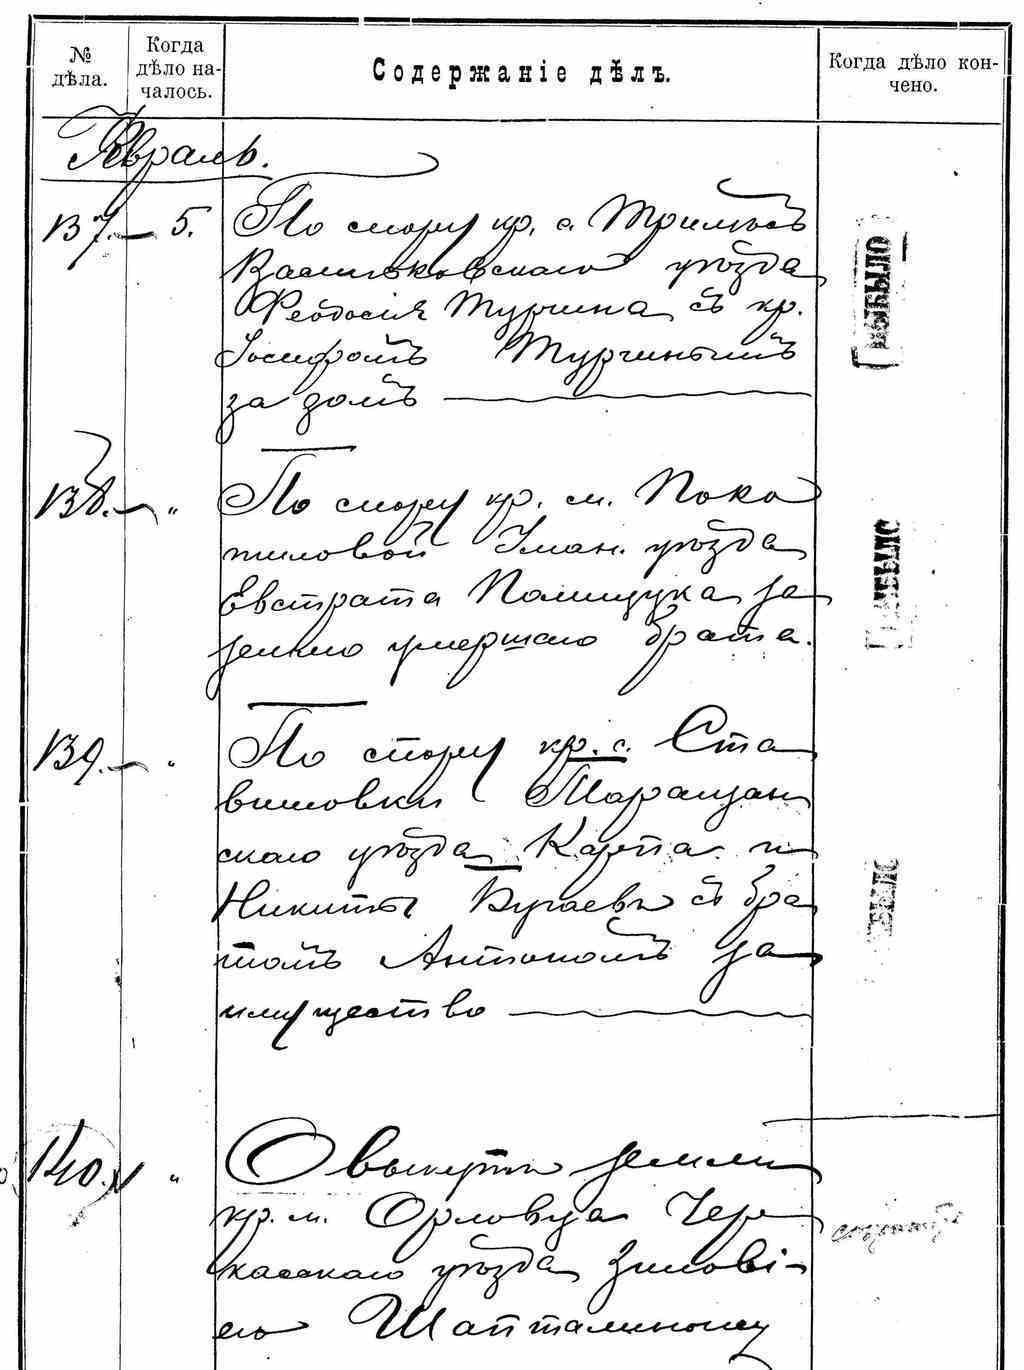 №
дѣла.
Когда
дѣло на-
чалось.
Содержаніе дѣлъ.
Когда дѣло кон-
чено.
Февраль.
137. — 5.
По спору кр. с. Трилѣсъ
Васильковскаго уѣзда
Феодосія Турчина съ кр.
Іосифомъ Турчинымъ
за домъ
ВЫБЫЛО
138. — „
По спору кр. м. Поко
тиловой Уман. уѣзда
Евстрата Полищука за
землю умершаго брата.
139. — „
По спору кр. с. Ста
вишовки Таращан
скаго уѣзда Карпа и
Никиты Бугаевы съ бра
томъ Антономъ за
имущество
140. „
О выкупѣ земли
кр. м. Орловца Чер
касскаго уѣзда Зиновi-
ею Шапталиному